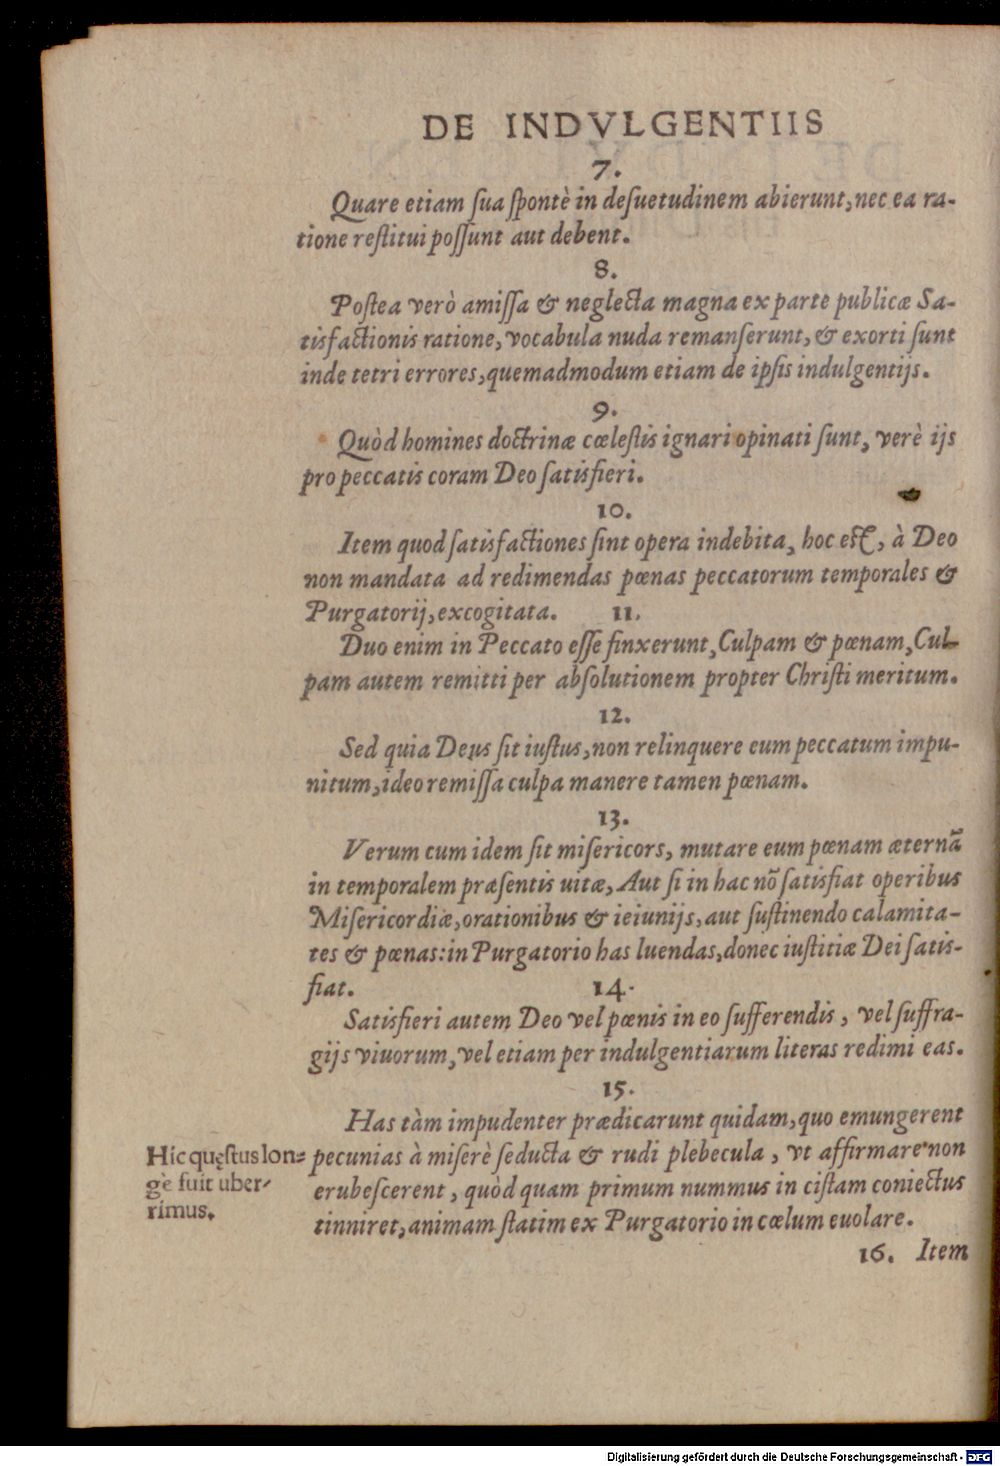 DE INDVLGENTIIS
7.
Quare etiam ſua ſpontè in deſuetudinem abierunt, nec ea ra-
tione reſtitui poſſunt aut debent.
8.
Poſtea verò amiſſa & neglecta magna ex parte publicæ Sa-
tisfactionis ratione, vocabula nuda remanſerunt, & exorti ſunt
inde tetri errores, quemadmodum etiam de ipſis indulgentijs.
9.
Quòd homines doctrinæ cœleſtis ignari opinati ſunt, verè ijs
pro peccatis coram Deo ſatisfieri.
10.
Item quod ſatisfactiones ſint opera indebita, hoc eſt, à Deo
non mandata ad redimendas pœnas peccatorum temporales &
Purgatorij, excogitata. 11.
Duo enim in Peccato eſſe finxerunt, Culpam & pœnam, Cul-
pam autem remitti per abſolutionem propter Chriſti meritum.
12.
Sed quia Deus ſit iuſtus, non relinquere eum peccatum impu-
nitum, ideo remiſſa culpa manere tamen pœnam.
13.
Verum cum idem ſit miſericors, mutare eum pœnam æternã
in temporalem præſentis uitæ, Aut ſi in hac nõ ſatisfiat operibus
Miſericordiæ, orationibus & ieiunijs, aut ſuſtinendo calamita-
tes & pœnas: in Purgatorio has luendas, donec iuſtitiæ Dei ſatis-
fiat. 14.
Satisfieri autem Deo vel pœnis in eo ſufferendis, vel ſuffra-
gijs viuorum, vel etiam per indulgentiarum literas redimi eas.
15.
Has tàm impudenter prædicarunt quidam, quo emungerent
pecunias à miſerè ſeducta & rudi plebecula, vt affirmare non
erubeſcerent, quòd quam primum nummus in ciſtam coniectus
tinniret, animam ſtatim ex Purgatorio in cœlum euolare.
Hic quęſtus lon-
gè fuit uber-
rimus.
16. Item
Digitalisierung gefördert durch die Deutsche Forschungsgemeinschaft - DFG